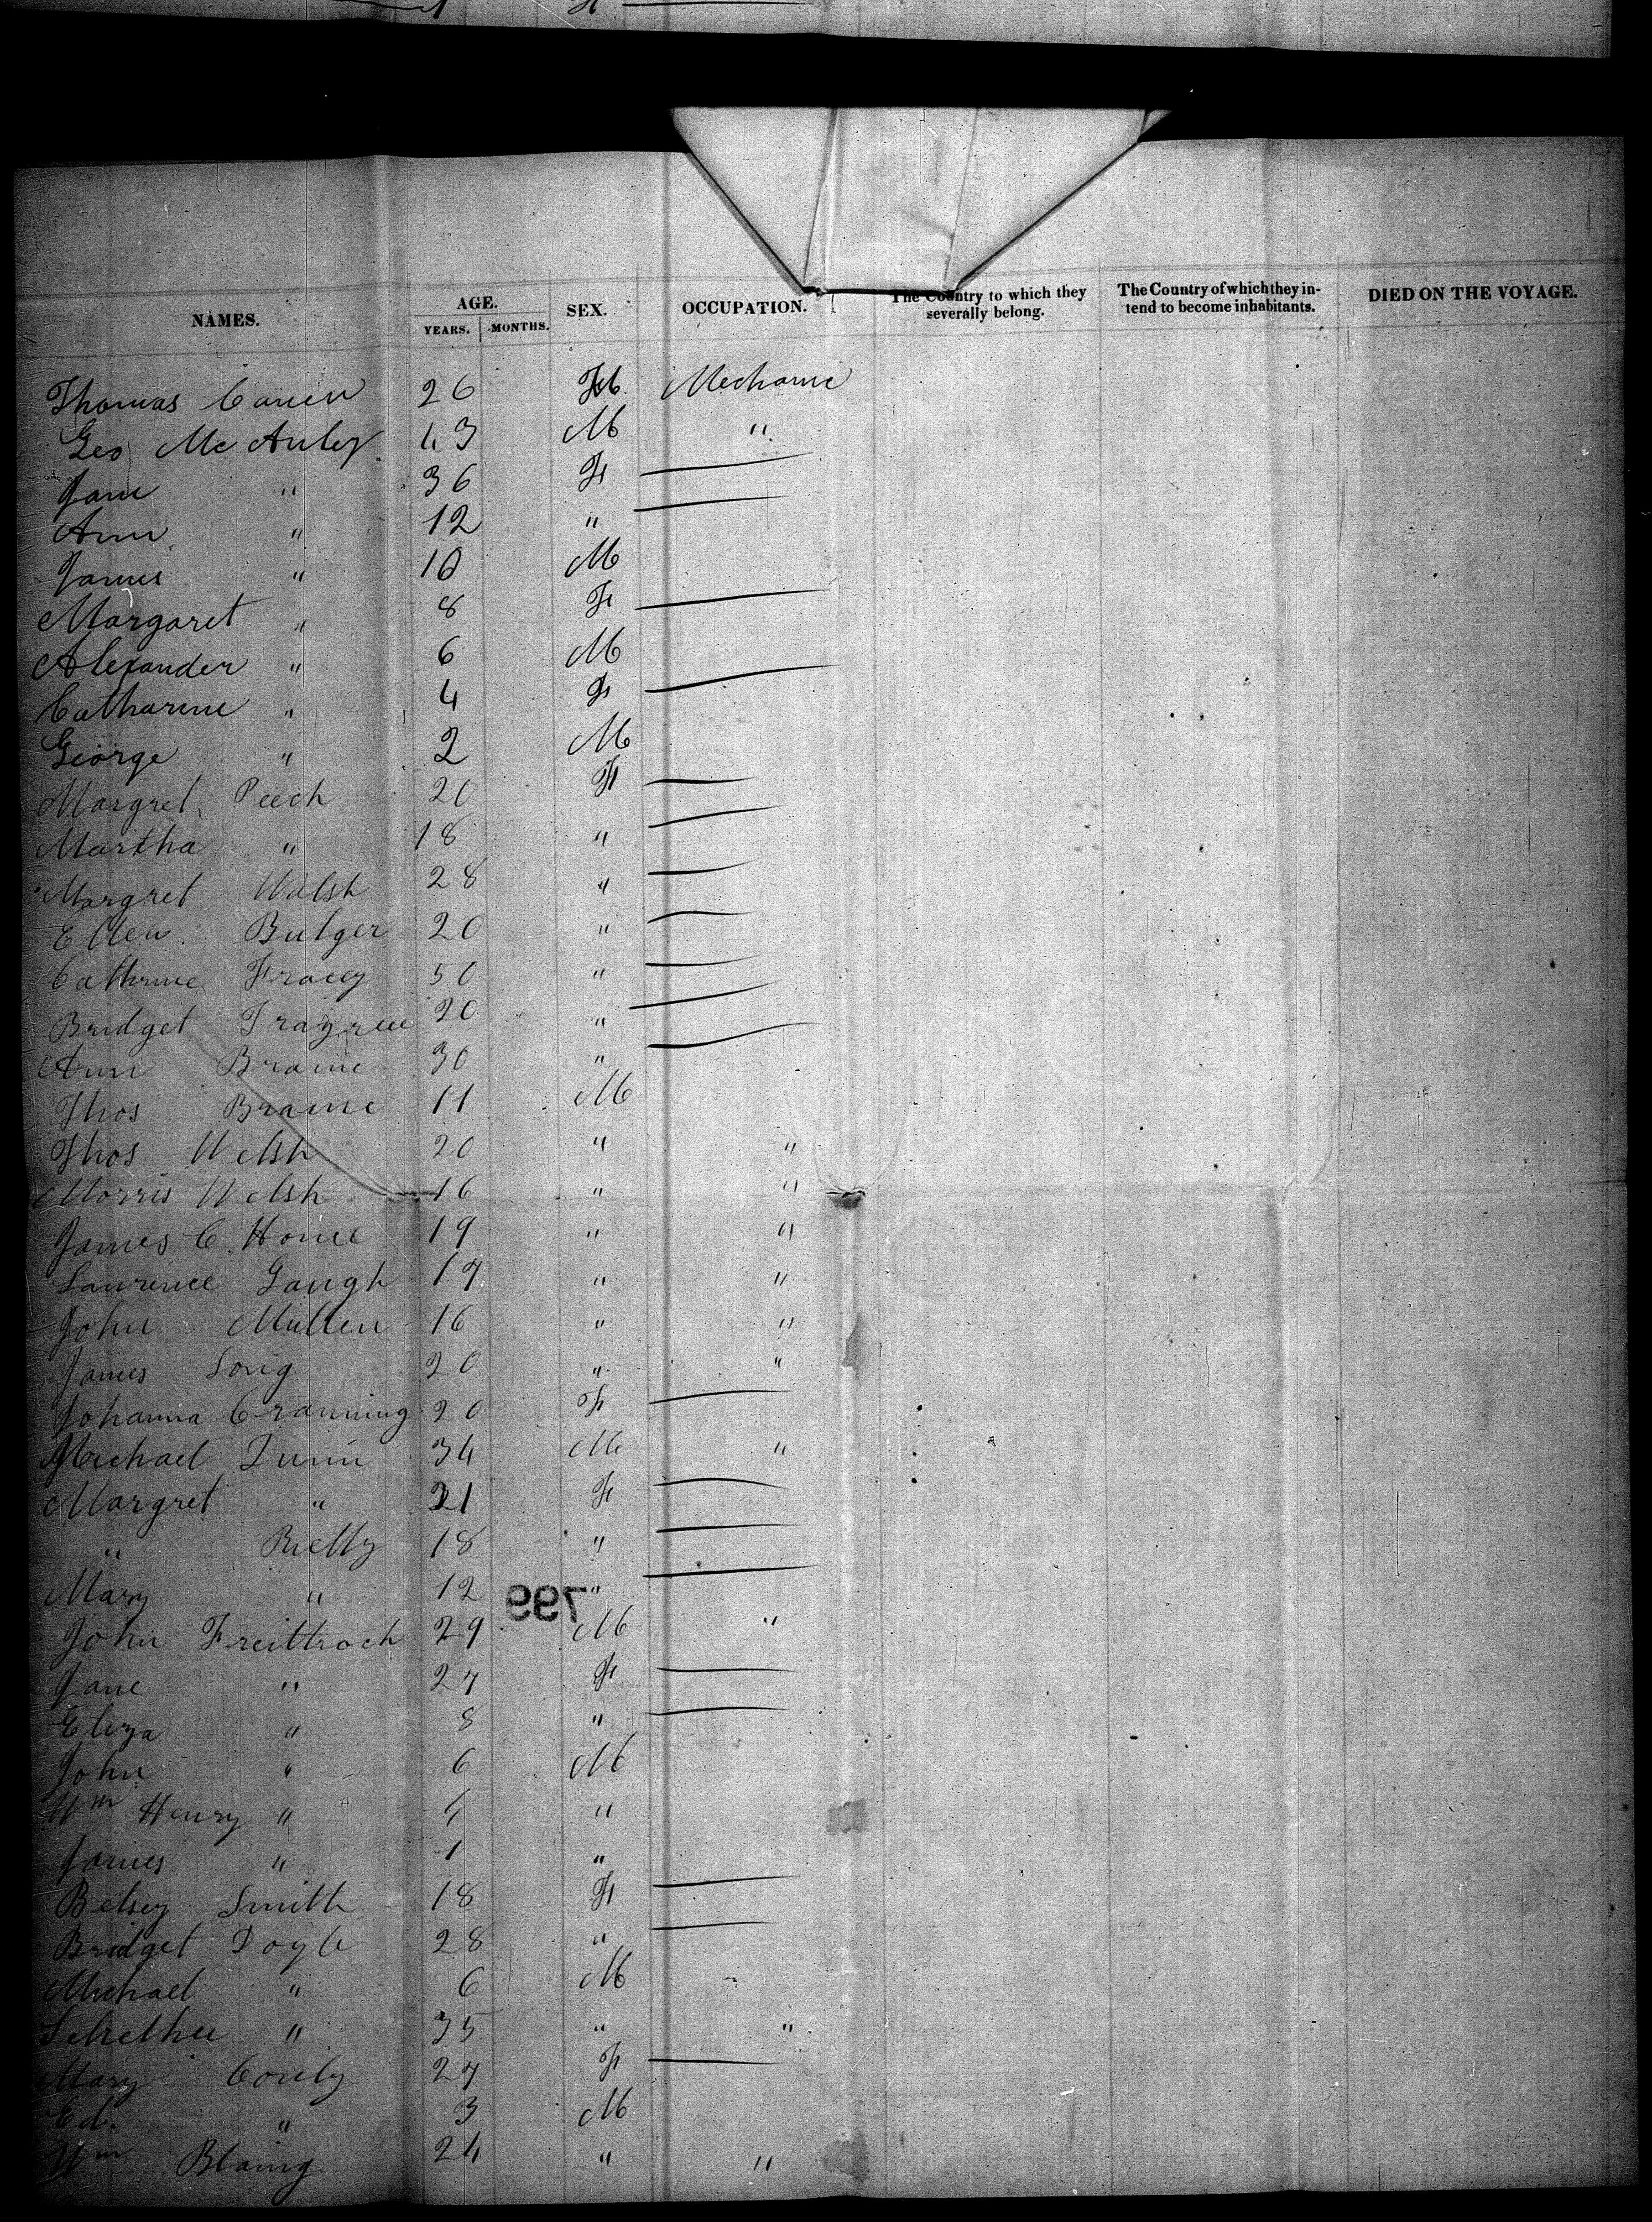 NAMES. AGE. SEX. OCCUPATION. The Country to which they severally belong. The Country of which they in-tend to become inhabitants. DIED ON THE VOYAGE.
YEARS. MONTHS.
Thomas 26 M Mechanic
Geo McAuley 43 M "
Jane " 36 F
Ann " 12 "
James " 10 M
Margaret " 8 F
Alexander " 6 M
Catharine " 4 F
George " 2 M
Margret Peech 20 F
Martha " 18 "
Margret Walsh 28 "
Ellen Bulger 20 "
Cathrine Tracey 50 "
Bridget 20 "
Ann 30 "
Thos 11 M
Thos Welsh 20 " "
Morris Welsh 16 " "
James C. 19 " "
Laurence Gaugh 17 " "
John Mullen 16 " "
James 20 " "
Johanna Cranning 20 F
Michael Dunn 34 M "
Margret " 21 F
" Rielly 18 "
Mary " 12 "
799
John 29 M "
Jane " 27 F
Eliza " 8 "
John " 6 M
Wm Henry " 4 "
James " 1 "
Betsey Smith 18 F
Bridget Doyle 28 "
Michael " 6 M
" 35 " "
Mary 27 F
Ed. " 3 M
Wm 24 " "